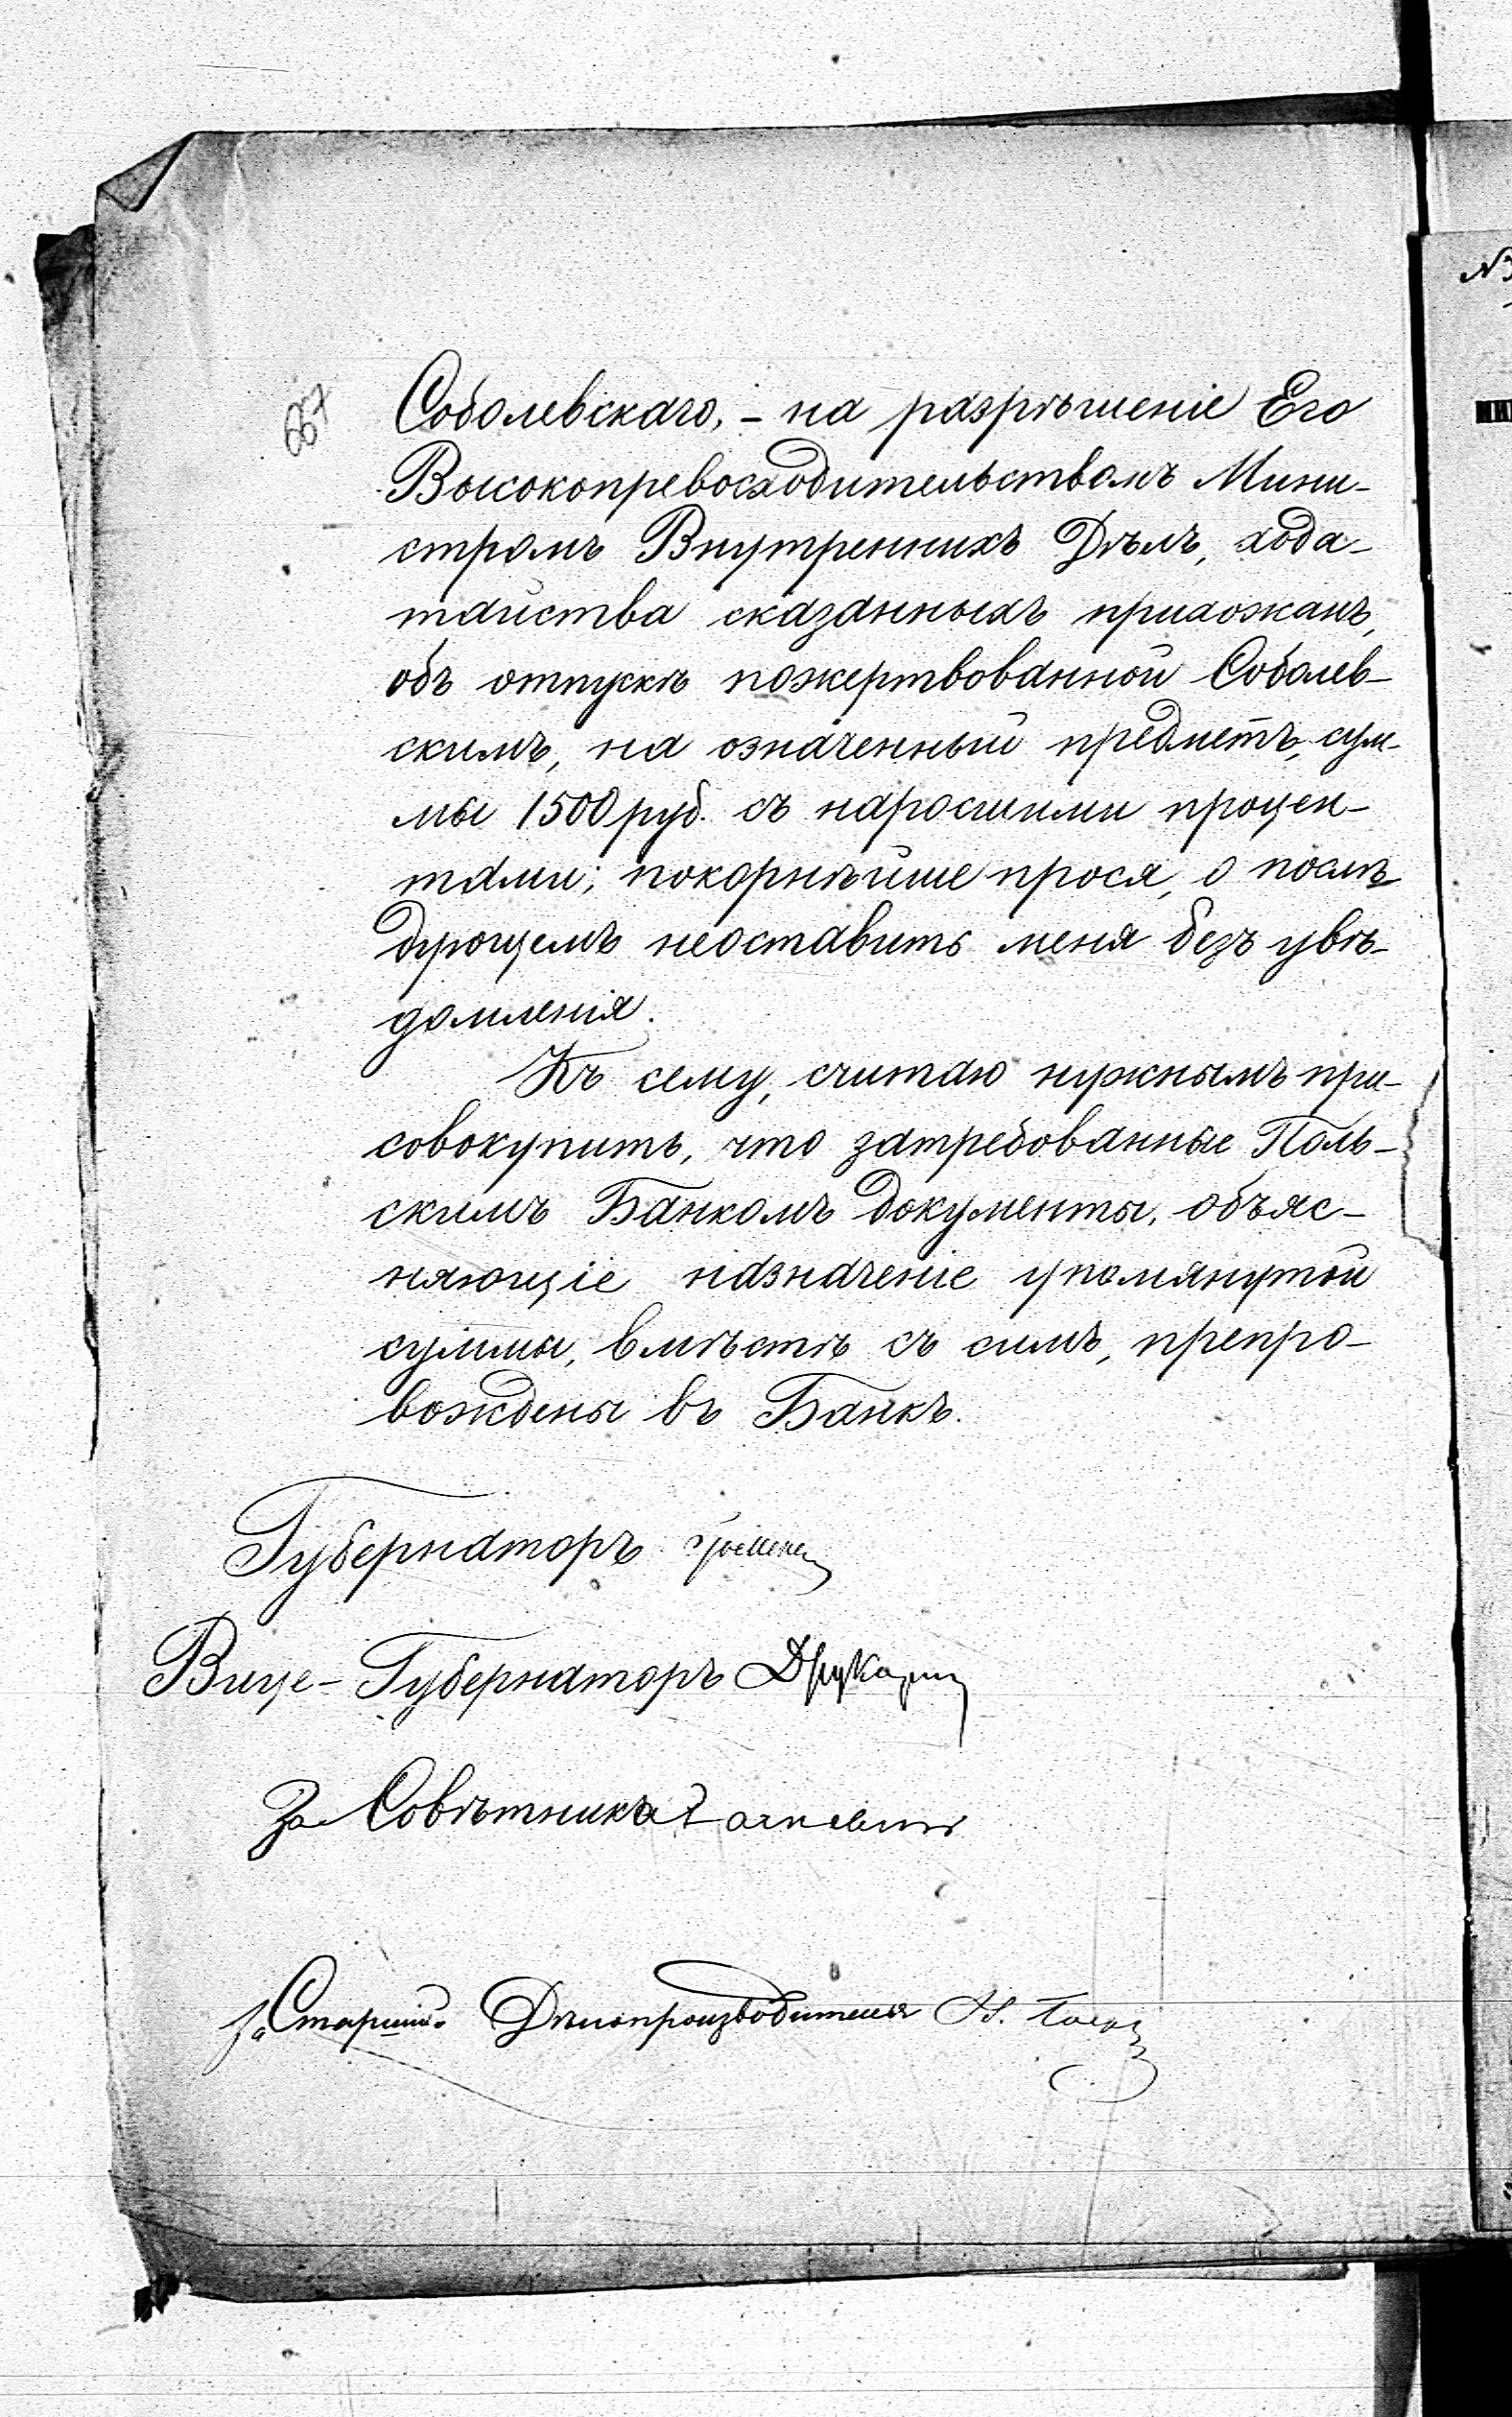 667
Соболевскаго, - на разрѣшеніе Его
Высокопревосходительствомъ Мини-
стромъ Внутреннихъ Дѣлъ, хода-
тайства сказанныхъ прихожанъ,
объ отпускѣ пожертвованной Соболев-
скимъ, на означенный предметъ, сум-
мы 1500 руб. съ наросшими процен-
тами; покорнѣйше прося, о послѣ
дующемъ неоставить меня безъ увѣ-
домленія.
Къ сему, считаю нужнымъ при-
совокупить, что затребованные Поль-
скимъ Банкомъ документы, объяс-
няющіе назначеніе упомянутой
суммы, вмѣстѣ съ симъ, препро-
вождены въ Банкъ.
Губернаторъ
Вице-Губернаторъ
За Совѣтника
За Старшаго Дѣлопроизводителя Н.